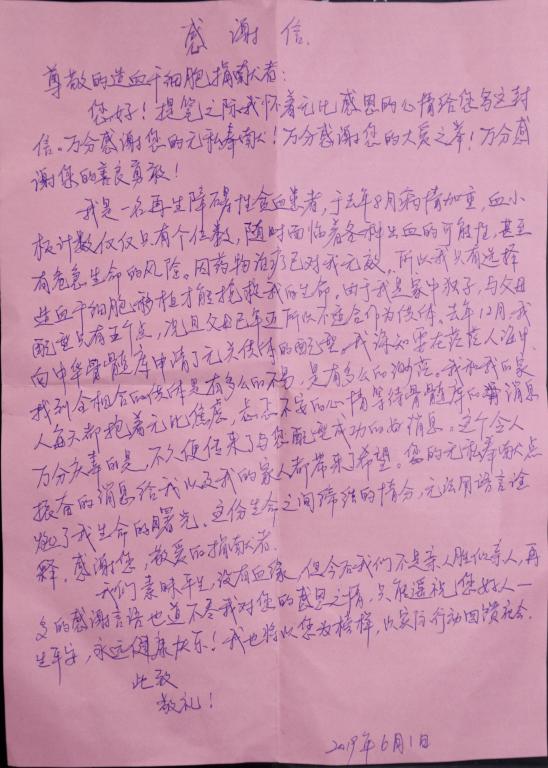 感谢信.
尊敬的造血干细胞捐献者:
您好!提笔之际我怀着无比感恩的心情给您写这封
信。万分感谢您的无私奉献!万分感谢您的大爱之举!万分感
谢您的善良勇敢!
我是一名再生障碍性贫血患者,于去年8月病情加重,血小
板计数仅仅只有个位数,随时面临着各种出血的可能性,甚至
有危急生命的风险。因药物治疗已对我无效,所以我只有选择
造血干细胞移植才能挽救我的生命。由于我是家中独子,与父母
配型只有五个点,况且父母已年迈所以不适合作为供体。去年12月,我
向中华骨髓库申请了无关供体的配型。我深知要在茫茫人海中
找到全相合的供体是有多么的不易,是有多么的渺茫。我和我的家
人每天都抱着无比焦虑,忐忑不安的心情等待骨髓库的消息
万分庆幸的是,不久便传来了与您配型成功的好消息。这个令人
振奋的消息给我以及我的家人都带来了希望。您的无私奉献点
燃了我生命的曙光,这份生命之间缔结的情分,无法用语言诠
释,感谢您,敬爱的捐献者.
我们素昧平生,没有血缘,但今后我们不是亲人胜似亲人,再
多的感谢言语也道不尽我对您的感恩之情,只能遥祝您好人一
生平安,永远健康快乐!我也将以您为榜样,以实际行动回馈社会.
此致
敬礼!
2019年6月1日